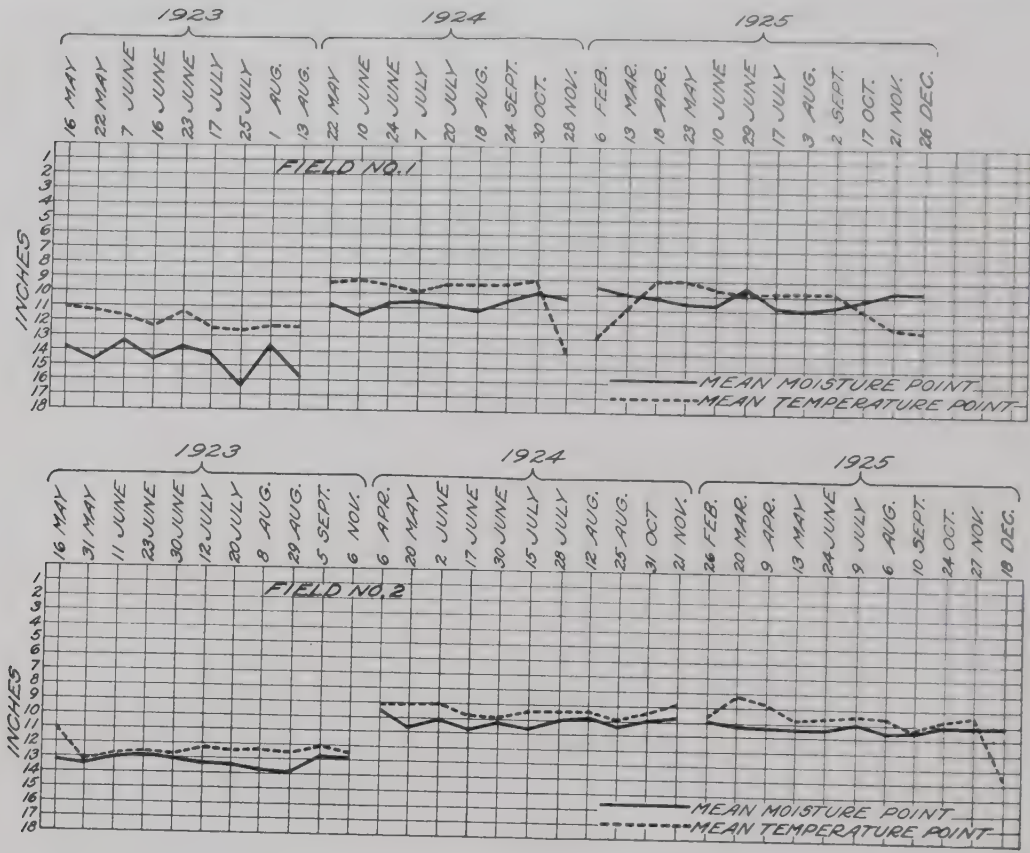 1923 1924 1925
16 MAY
22 MAY
7 JUNE
16 JUNE
23 JUNE
17 JULY
25 JULY
1 AUG.
13 AUG.
22 MAY
10 JUNE
24 JUNE
7 JULY
20 JULY
18 AUG.
24 SEPT.
30 OCT.
28 NOV.
6 FEB.
13 MAR.
18 APR.
23 MAY
10 JUNE
29 JUNE
17 JULY
3 AUG.
2 SEPT.
17 OCT.
21 NOV.
26 DEC.
FIELD NO.1
INCHES
1
2
3
4
5
6
7
8
9
10
11
12
13
14
15
16
17
18
MEAN MOISTURE POINT
MEAN TEMPERATURE POINT
1923 1924 1925
16 MAY
31 MAY
11 JUNE
23 JUNE
30 JUNE
12 JULY
20 JULY
8 AUG.
29 AUG.
5 SEPT.
6 NOV.
6 APR.
20 MAY
2 JUNE
17 JUNE
30 JUNE
15 JULY
28 JULY
12 AUG.
25 AUG.
31 OCT
21 NOV.
26 FEB.
20 MAR.
9 APR.
13 MAY
24 JUNE
9 JULY
6 AUG.
10 SEPT.
24 OCT.
27 NOV.
18 DEC.
FIELD NO.2
INCHES
1
2
3
4
5
6
7
8
9
10
11
12
13
14
15
16
17
18
MEAN MOISTURE POINT
MEAN TEMPERATURE POINT